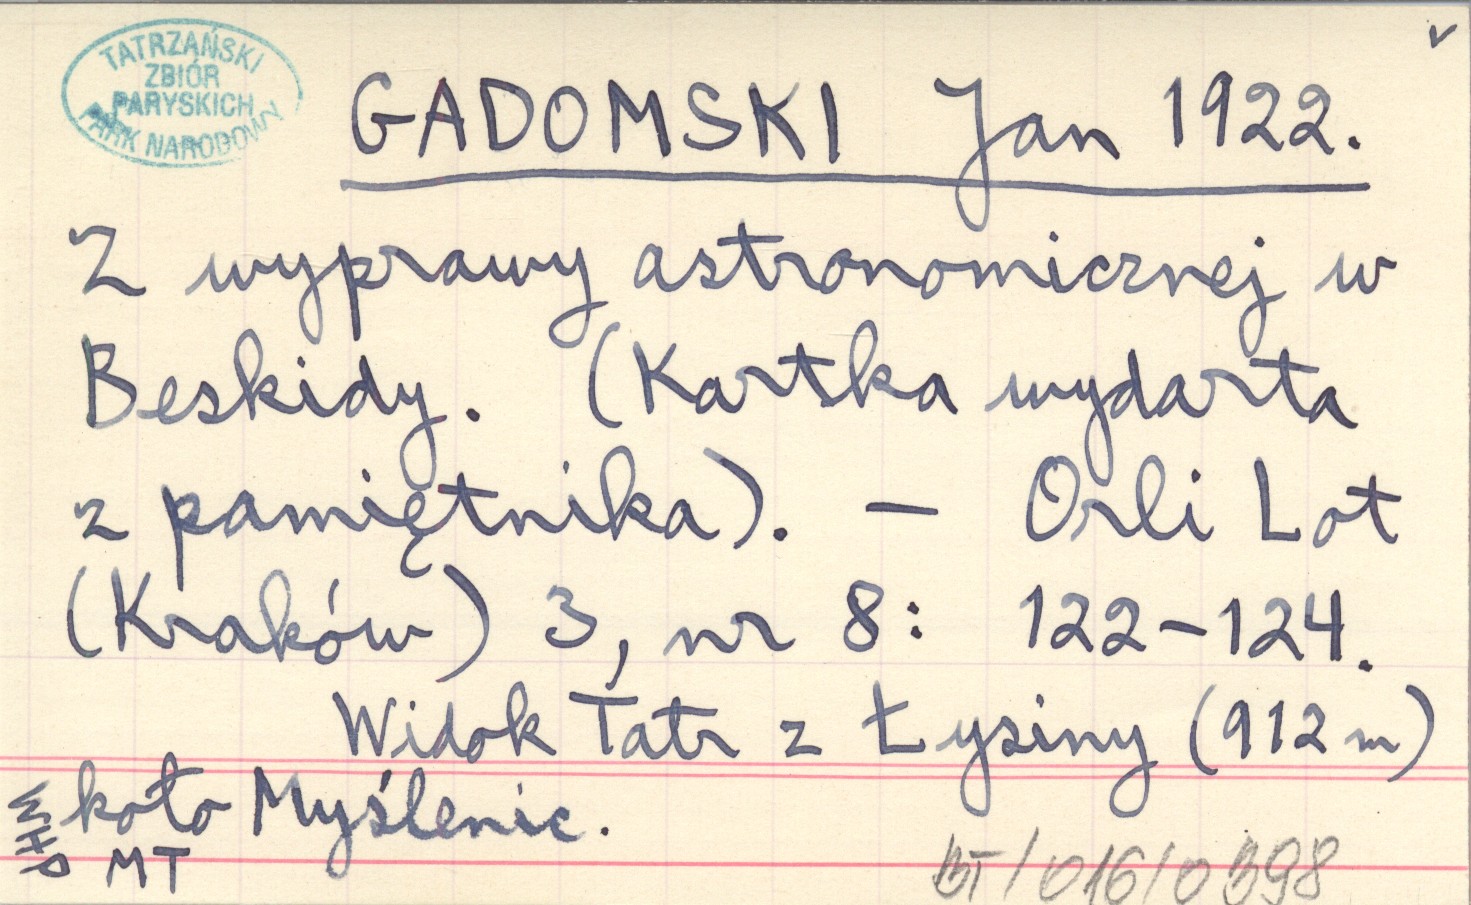 TATRZAŃSKI
ZBIÓR
PARYSKICH
PARK NARODOWY
GADOMSKI Jan 1922.
Z wyprawy astronomicznej w
Beskidy. (Kartka wydarta
z pamiętnika). — Orli Lot
(Kraków) 3, nr 8: 122-124.
Widok Tatr z Łysiny (912 m)
koło Myślenic.
MT
BT/016/0398